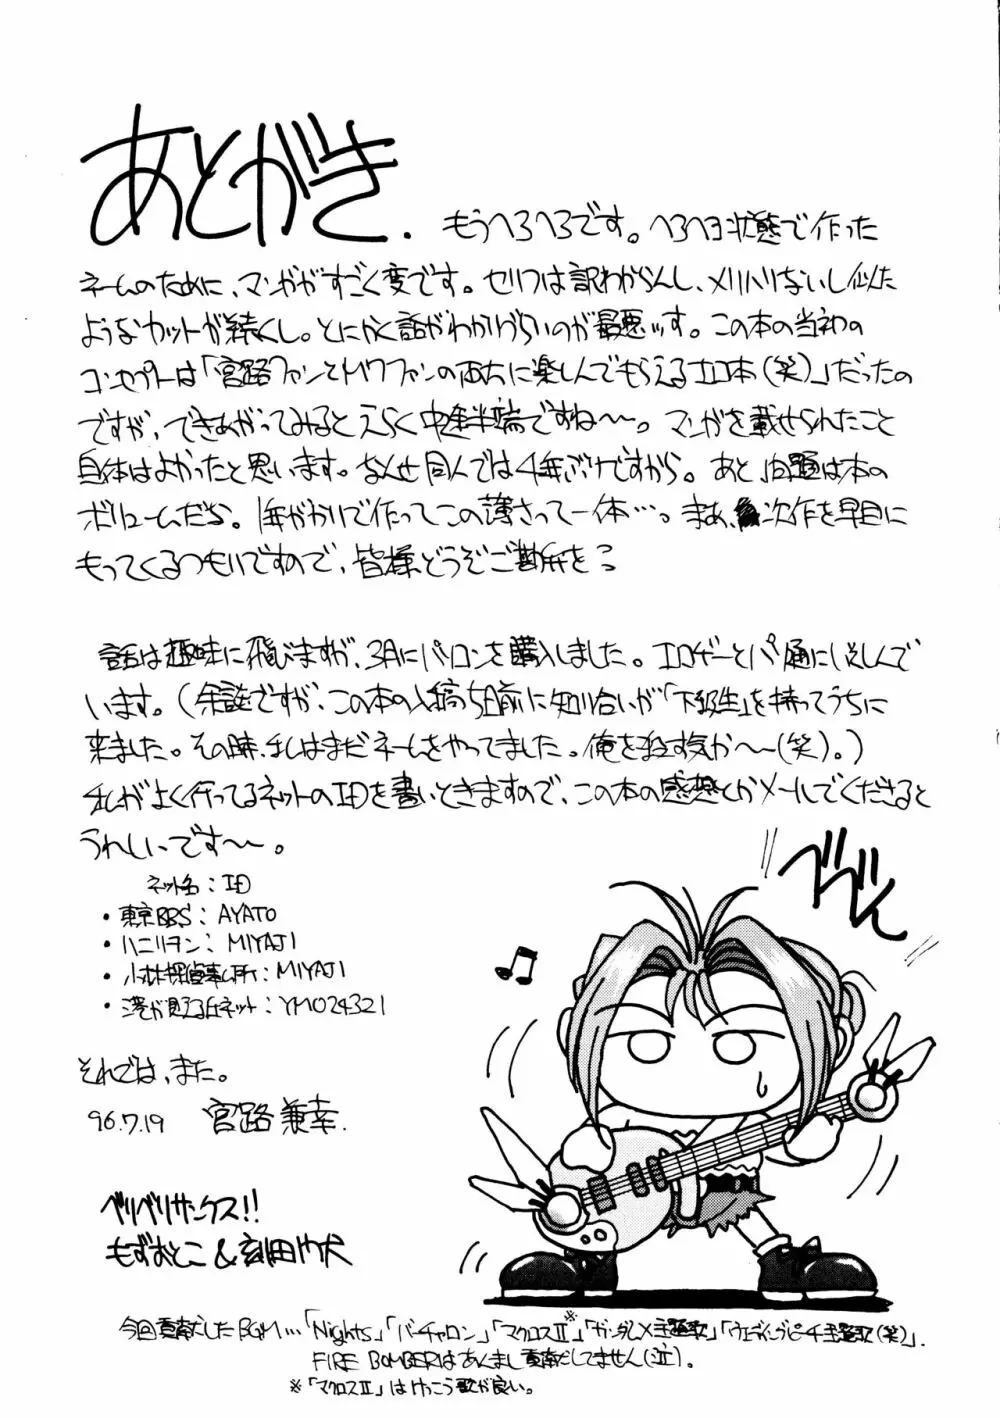 あとがき.
もうへろへろです。へろへろ状態で作った
ネームのために、マンガがすごく変です。セリフは訳わからんし、メリハリないし似た
ようなカットが続くし。とにかく話がわかりづらいのが最悪ッす。この本の当初の
コンセプトは「宮路ファンとMWファンの両方に楽しんでもらえるエロ本(笑)」だったの
ですが、できあがってみるとえらく中途半端ですね〜〜。マンガを載せられたこと
自体はよかったと思います。なんせ同人では4年ぶりですから。あと、問題は本の
ボリュームだな。1年がかりで作ってこの薄さって一体…。まあ、次作を早目に
もってくるつもりですので、皆様どうぞご勘弁を
話は趣味に飛びますが、3月にパソコンを購入しました。エロゲーとパ通にいそしんで
います。(余談ですが、この本の入稿5日前に知り合いが「下級生」を持ってうちに
来ました。その時、私はまだネームをやってました。俺を殺す気か〜〜(笑)。)
私がよく行ってるネットのIDを書いときますので、この本の感想とかメールでくださると
うれしいです〜〜。
ネット名:ID
・東京BBS:AYATO
・ハニリヲン:MIYAJI
・小林探偵事ム所:MIYAJI
・港が見える丘ネット:YM024321
それでは、また。
96.7.19 宮路兼幸.
ベリベリサンクス!!
もずおとこ&刻田
ベベベん
♪
今回貢献したBGM…「Nights」「バーチャロン」「マクロスⅡ※」「ガンダムX主題歌」「ウェディングピーチ主題歌(笑)」.
FIRE BOMBERはあんまし貢献してません(泣).
※「マクロスⅡ」はけっこう歌が良い。